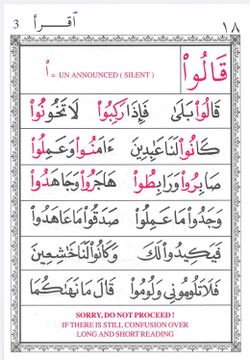 ١٨ أقرأ 3
قَالُوا۟
ا۟ = .UN ANNOUNCED ( SILENT )
قَالُوا۟ بَلَىٰ فَإِذَا رَكِبُوا۟ لَا تَخُونُوا۟
كَانُوا۟ لَنَا عَـٰبِدِينَ ءَامَنُوا۟ وَعَمِلُوا۟
صَابِرُوا۟ وَرَابِطُوا۟ هَاجَرُوا۟ وَجَـٰهَدُوا۟
وَجَدُوا۟ مَا عَمِلُوا۟ صَدَقُوا۟ مَا عَـٰهَدُوا۟
فَيَكِيدُوا۟ لَكَ وَكَانُوا۟ لَنَا خَـٰشِعِينَ
فَلَا تَلُومُونِى وَلُومُوا۟ قَالَ مَا نَهَىٰكُمَا
SORRY, DO NOT PROCEED !
IF THERE IS STILL CONFUSION OVER
LONG AND SHORT READING